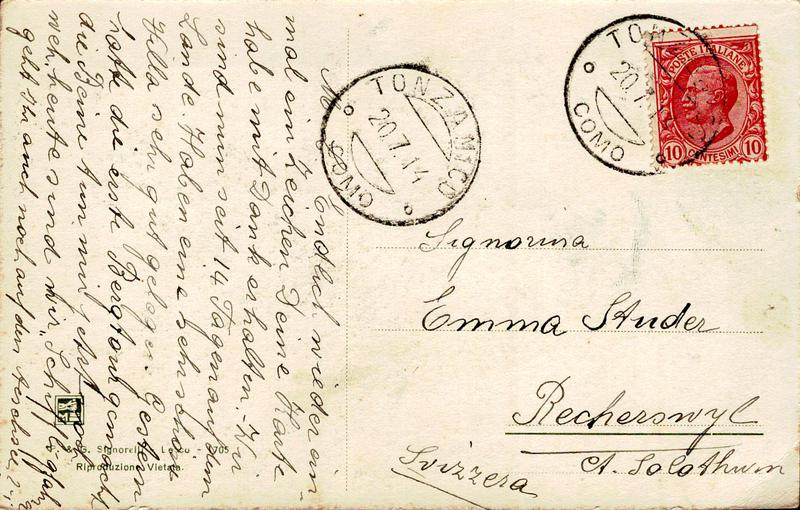 Endlich wieder ein-
mal ein Zeichen Deine Karte
habe mit Dank erhalten. - Wir
sind nun seit 14 Tagen auf dem
Lande. Haben eine sehr schöne
Villa sehr gut gelegen. Gestern
hatt die erste Bergtour gemacht
die Beine tun mir jetzt
weh, heute sind wir Schiffli gfahr
geht Ihr auch noch auf den
TONZANICO
20.7.14
COMO
TON
20.7.1
COMO
POSTE ITALIANE
10 CENTESIMI 10
Signorina
Emma Studer
Recherswyl
Ct. Solothurn
Svizzera
& G. Signorelli - Lecco - 705
Riproduzione Vietata.